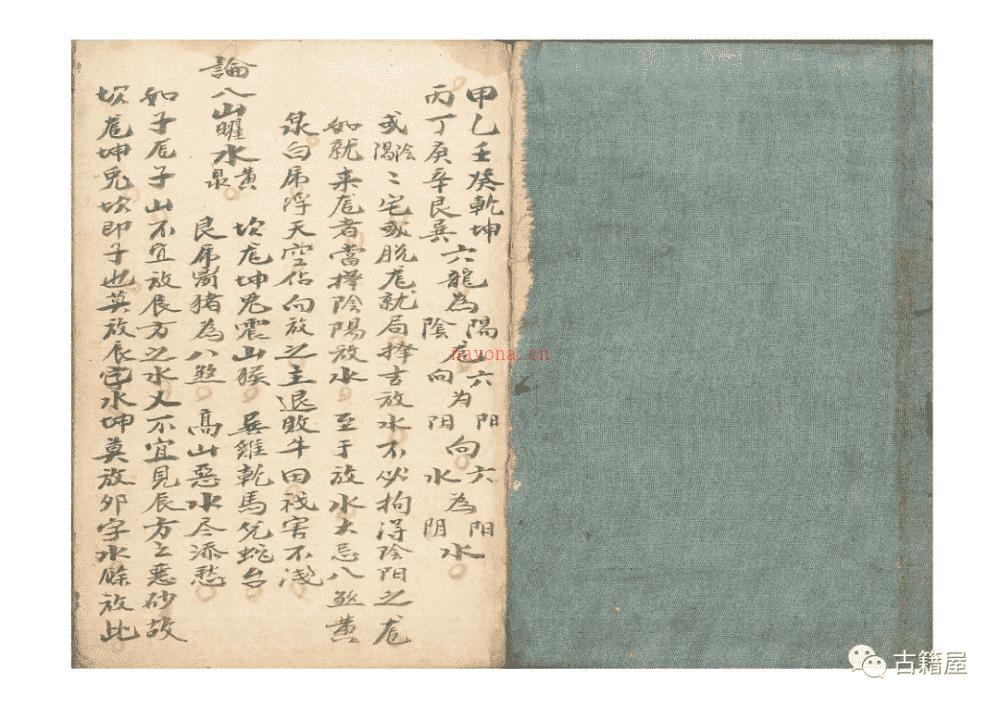 甲乙壬癸乾坤 陽 六 阳 六 阳
六龍為 龙 为 向 為 水
丙丁庚辛艮巽 陰 向 阴 水 阴
或陰陽二宅或脱龙就局擇吉放水不必拘淂陰阳之龙
如就来龙者當擇陰陽放水 至于放水大忌八煞黄
泉白虎浮天空佔向放之主退敗牛田害不淺
論八山曜水黄泉
坎龙坤兔震山猴 巽雞乾馬兑蛇台
艮虎离猪為八煞 高山惡水尽添愁
如子龙子山不宜放辰方之水又不宜見辰方之惡砂故
坎龙坤兔坎即子也莫放辰字水坤莫放卯字水餘放此
nayona.cn
古籍屋